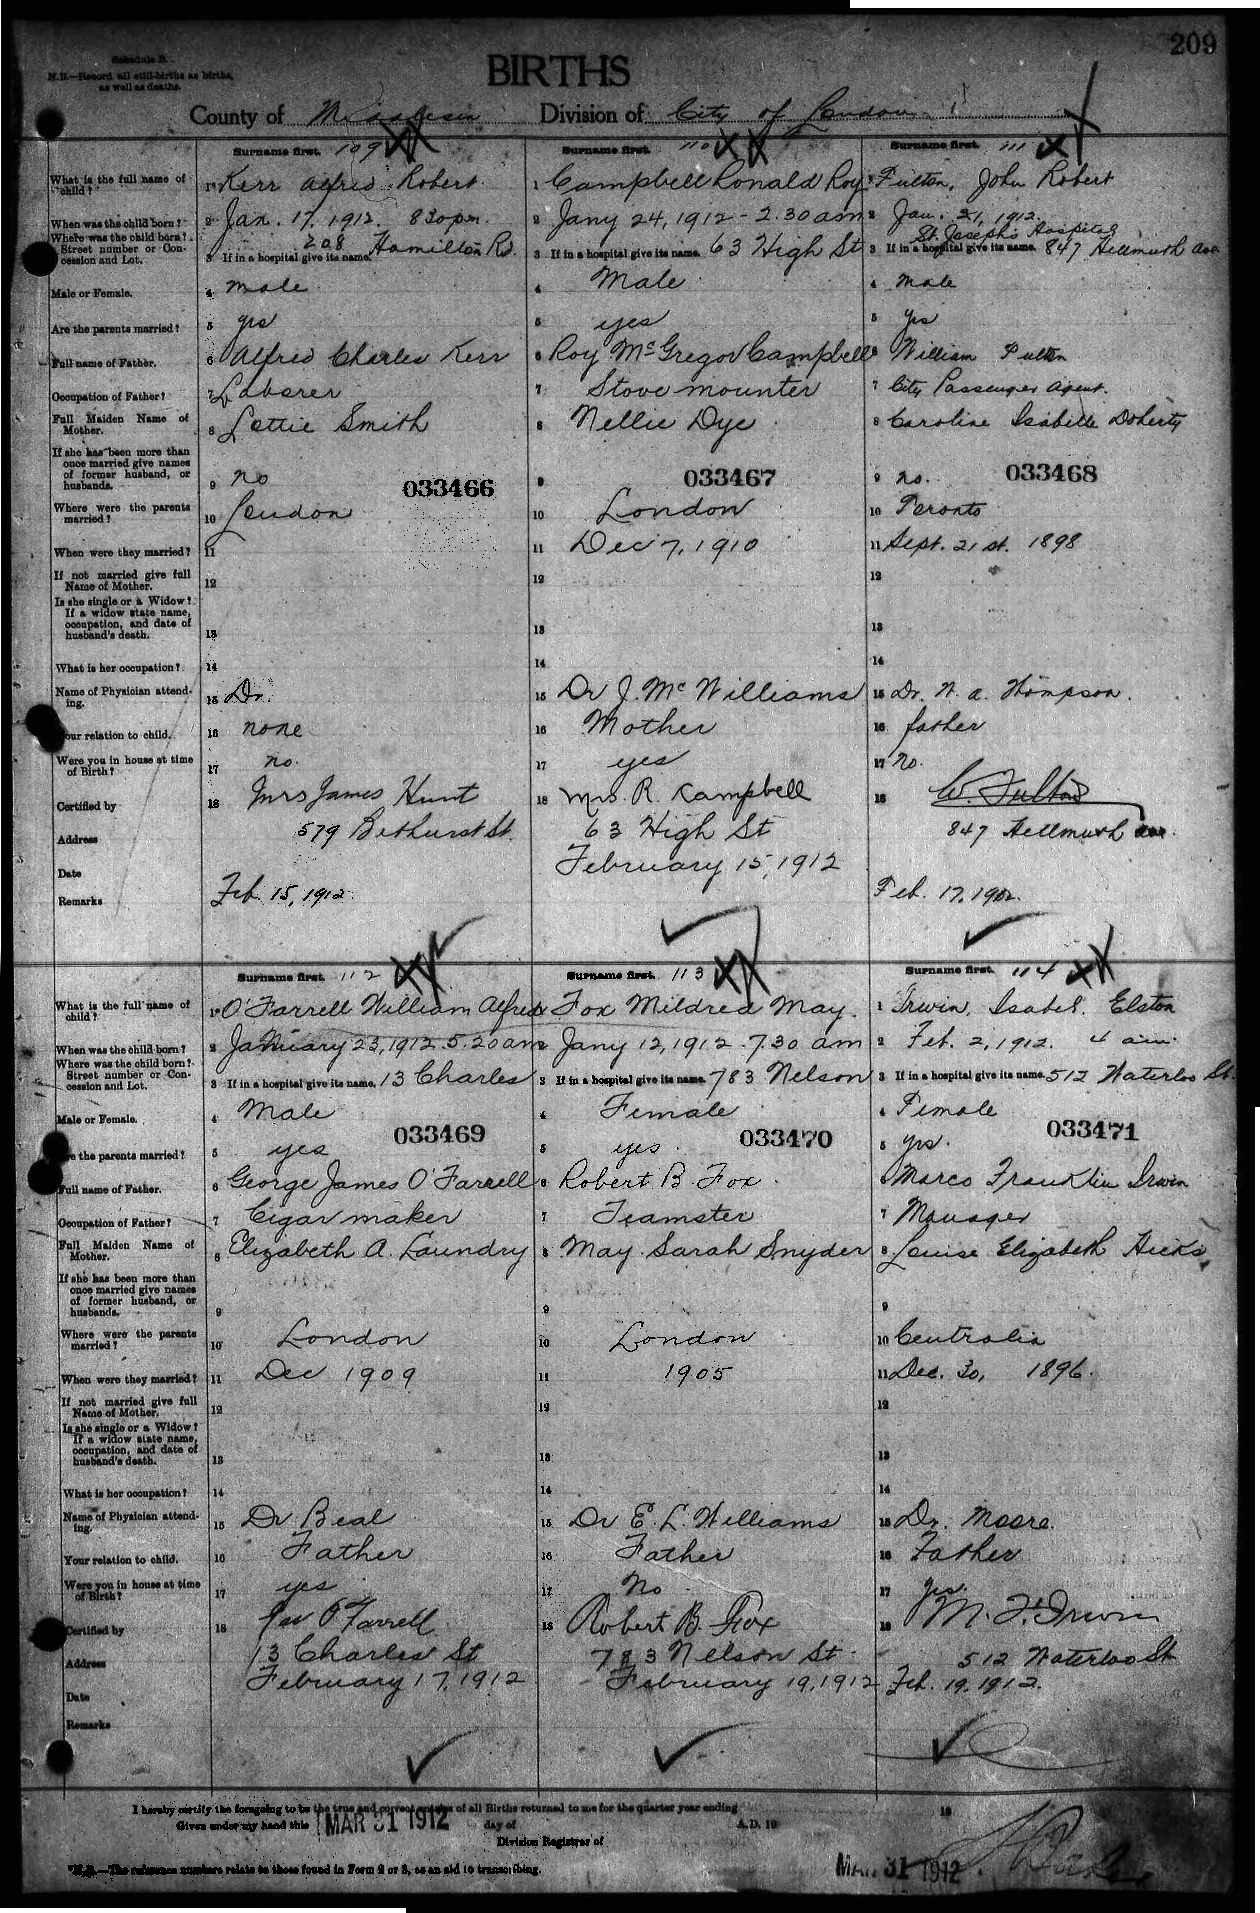 209
Schedule B.
N.B.—Record all still-births as births,
as well as deaths.
BIRTHS
County of Middlesex Division of City of London
Surname first. 109 Surname first. 110 Surname first. 111
What is the full name of child? 1 Kerr Alfred Robert 1 Campbell Ronald Roy Fulton, John Robert
When was the child born? 2 Jan. 17, 1912. 830 pm. 2 Jany 24, 1912 - 2.30 am 2 Jan. 21, 1912.
St. Joseph's Hospital
Where was the child born? Street number or Concession and Lot. 3 If in a hospital give its name. 208 Hamilton Rd. 3 If in a hospital give its name. 63 High St 3 If in a hospital give its name. 847 Hellmuth Ave
Male or Female. 4 male 4 Male 4 male
Are the parents married? 5 yes 5 yes 5 yes
Full name of Father. 6 Alfred Charles Kerr 6 Roy McGregor Campbell 6 William Fulton
Occupation of Father? 7 Laborer 7 Stove mounter 7 City Passenger Agent.
Full Maiden Name of Mother. 8 Lottie Smith 8 Nellie Dye 8 Caroline Isabelle Doherty
If she has been more than once married give names of former husband, or husbands. 9 no 033466 9 033467 9 no. 033468
Where were the parents married? 10 London 10 London 10 Toronto
When were they married? 11 11 Dec 7, 1910 11 Sept. 21st. 1898
If not married give full Name of Mother. 12 12 12
Is she single or a Widow? If a widow state name, occupation, and date of husband's death. 13 13 13
What is her occupation? 14 14 14
Name of Physician attending. 15 Dr. 15 Dr J. McWilliams 15 Dr. W. A. Thompson.
Your relation to child. 16 none 16 Mother 16 father
Were you in house at time of Birth? 17 no. 17 yes 17 no.
Certified by 18 Mrs James Hunt 18 Mrs. R. Campbell 18 W. Fulton
Address 579 Bathurst St. 63 High St 847 Hellmuth Ave.
Date Feb. 15, 1912. February 15, 1912 Feb. 17, 1912.
Remarks
Surname first. 112 Surname first. 113 Surname first. 114
What is the full name of child? 1 O'Farrell William Alfred Fox Mildred May. 1 Irwin, Isabel. Elston
When was the child born? 2 January 23, 1912. 5.20 am 2 Jany 12, 1912. 7.30 am 2 Feb. 2, 1912. 4 am.
Where was the child born? Street number or Concession and Lot. 3 If in a hospital give its name. 13 Charles 3 If in a hospital give its name. 783 Nelson 3 If in a hospital give its name. 512 Waterloo St.
Male or Female. 4 Male 4 Female 4 Female
033469 033470 033471
Are the parents married? 5 yes 5 yes. 5 yes.
Full name of Father. 6 George James O'Farrell 6 Robert B. Fox. Marco Franklin Irwin
Occupation of Father? 7 Cigar maker 7 Teamster 7 Manager
Full Maiden Name of Mother. 8 Elizabeth A. Laundry 8 May Sarah Snyder 8 Louise Elizabeth Hicks
If she has been more than once married give names of former husband, or husbands. 9 9 9
Where were the parents married? 10 London 10 London 10 Centralia
When were they married? 11 Dec 1909 11 1905 11 Dec. 30, 1896.
If not married give full Name of Mother. 12 12 12
Is she single or a Widow? If a widow state name, occupation, and date of husband's death. 13 13 13
What is her occupation? 14 14 14
Name of Physician attending. 15 Dr Beal 15 Dr E. L. Williams 15 Dr. Moore.
Your relation to child. 16 Father 16 Father 16 Father
Were you in house at time of Birth? 17 yes 17 No 17 yes.
Certified by 18 O'Farrell 18 Robert B. Fox 18 M. F. Irwin
Address 13 Charles St 783 Nelson St 512 Waterloo St
Date February 17, 1912 February 19, 1912 Feb. 19, 1912.
Remarks
I hereby certify the foregoing to be the true and correct entries of all Births returned to me for the quarter year ending 19
Given under my hand this MAR 31 1912 day of A.D. 19
Division Registrar of
*N.B.—The reference numbers relate to those found in Form 2 or 3, as an aid to transcribing.
MAR 31 1912